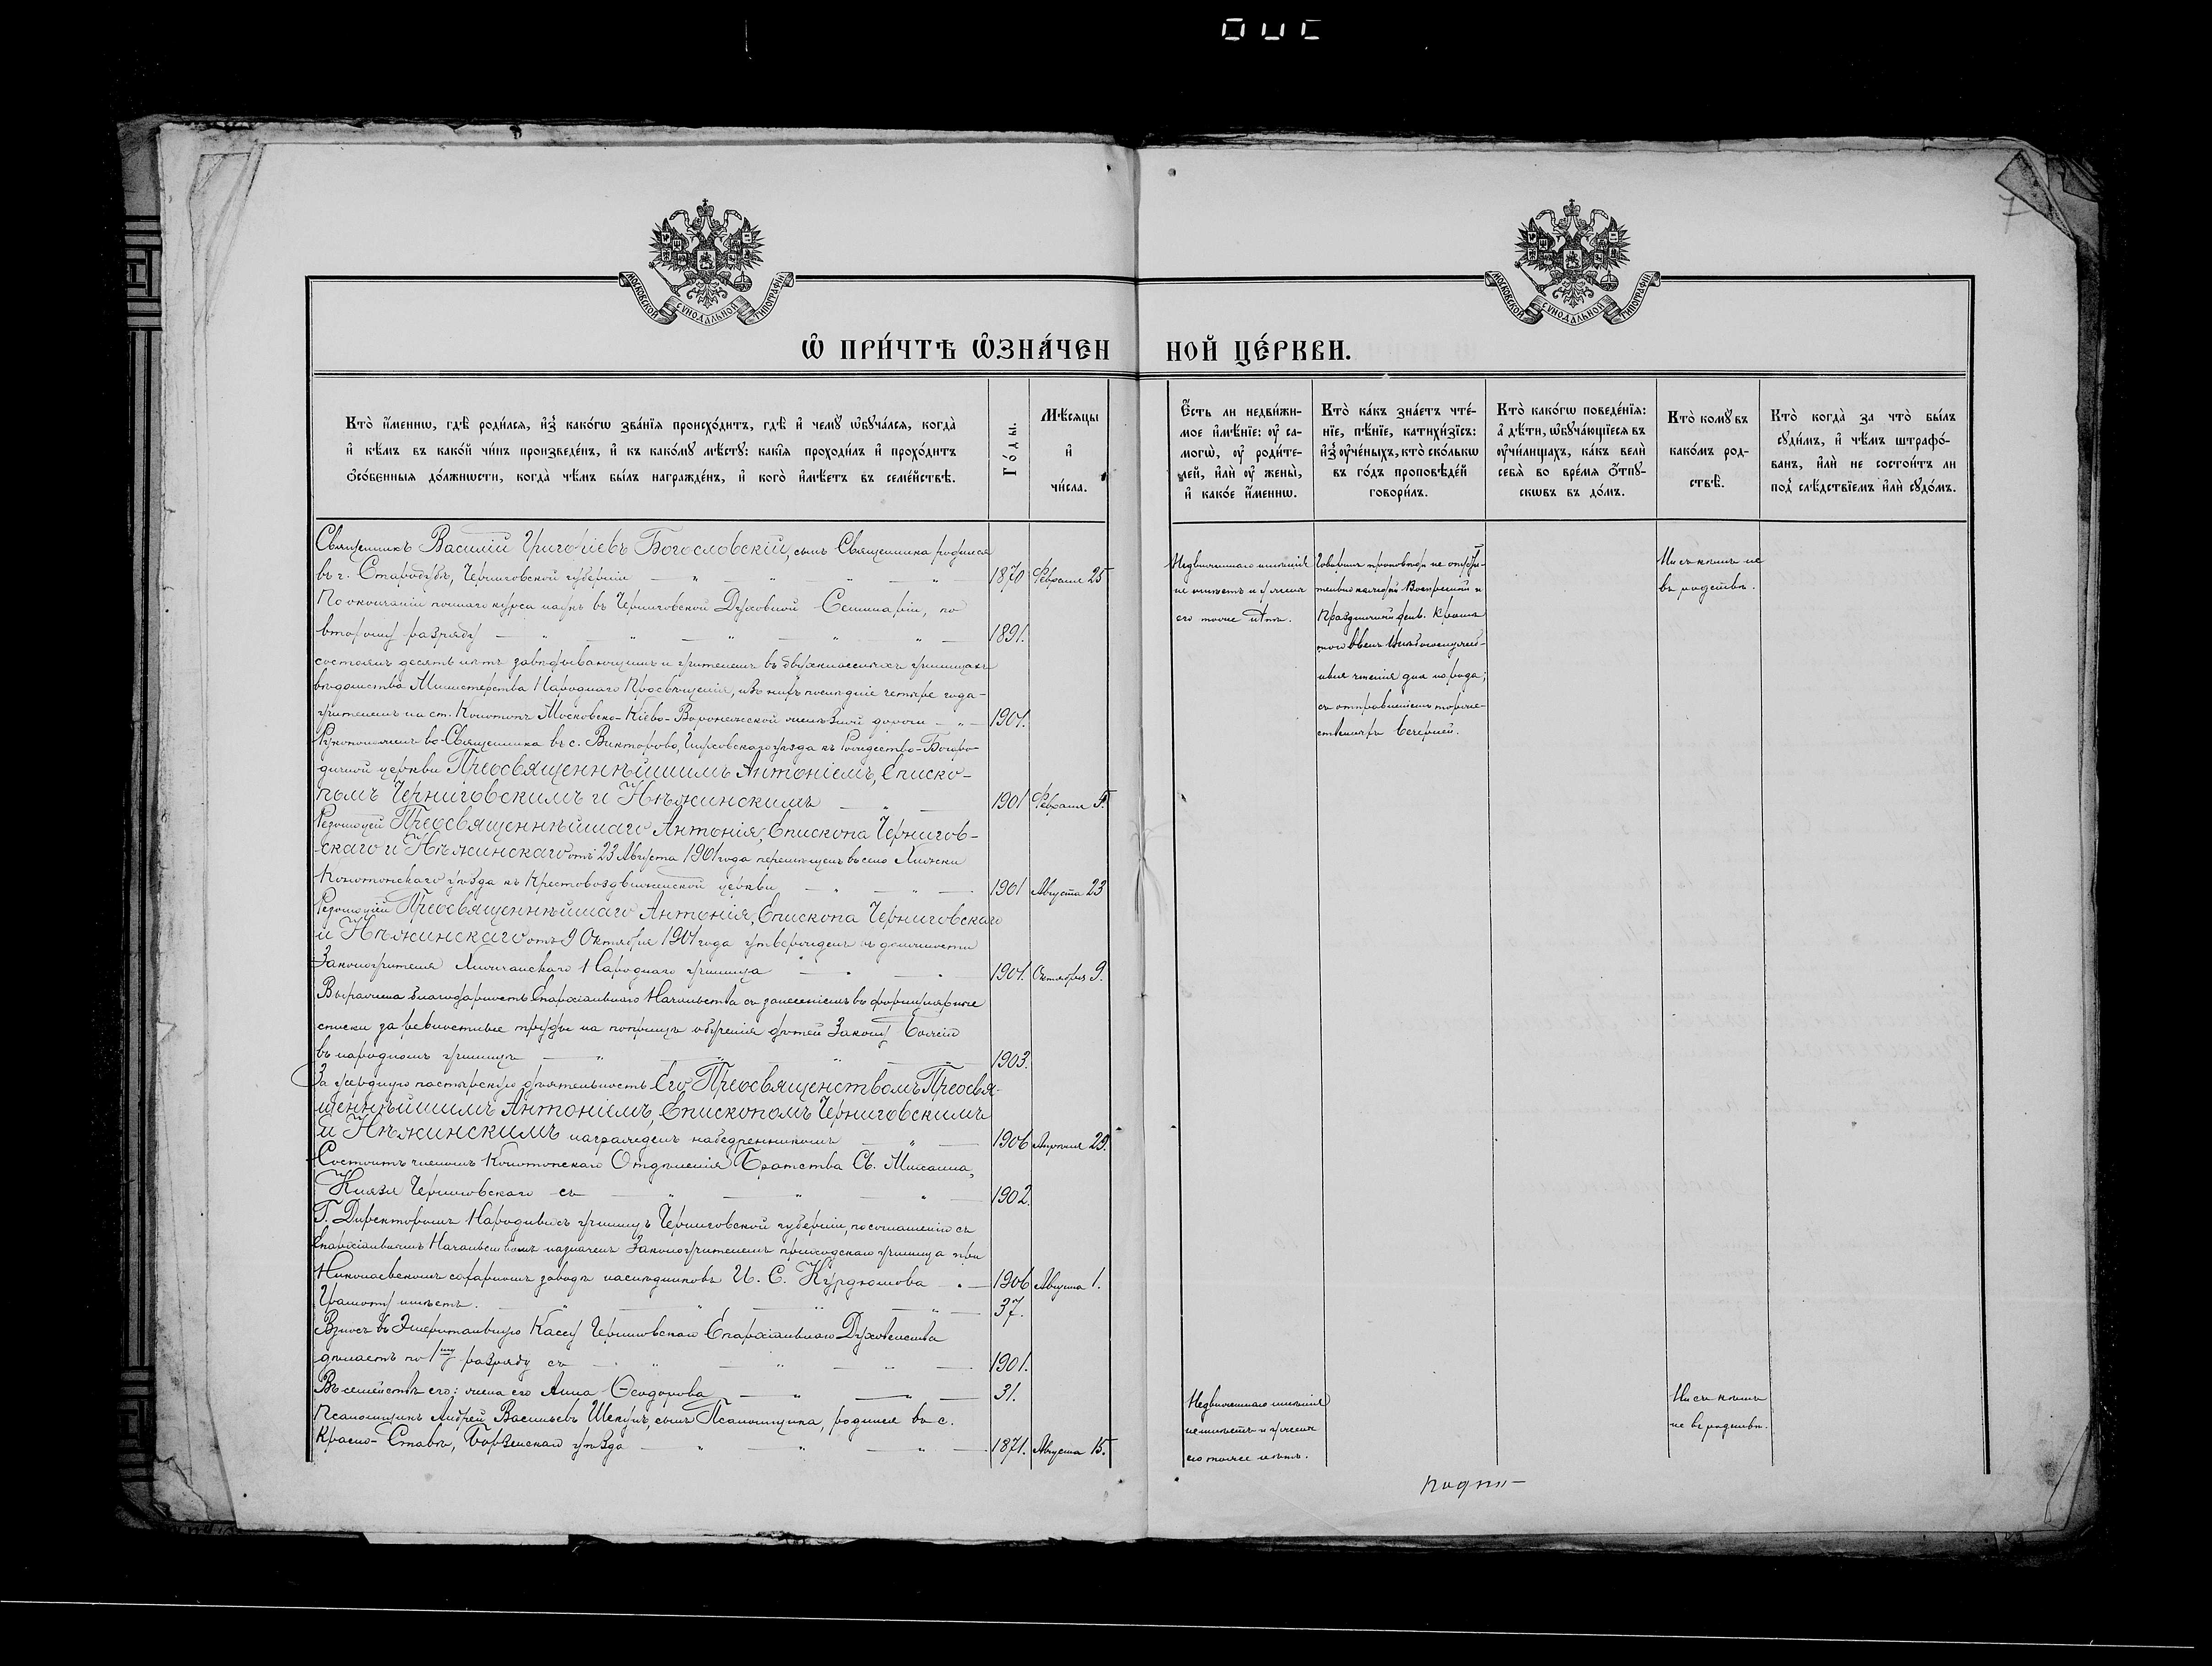 7
МОСКОВСКОЙ СѴНОДАЛЬНОЙ ТИПОГРАФІИ
МОСКОВСКОЙ СѴНОДАЛЬНОЙ ТИПОГРАФІИ
Ѡ҆ ПРИ́ЧТѢ Ѡ҆ЗНА́ЧЕН НОЙ ЦЕ́РКВИ.
Кто̀ и҆́менно, гдѣ̀ роди́лсѧ, и҆з̾ како́гѡ зва́нїѧ происхо́дитъ, гдѣ̀ и҆ чемꙋ̀ ѡ҆бꙋча́лсѧ, когда̀
и҆ кѣ́мъ въ како́й чи́нъ произведе́нъ, и҆ къ како́мꙋ мѣ́стꙋ: какі̑ѧ проходи́лъ и҆ прохо́дитъ
ѻ҆со́бенныѧ до́лжнѡсти, когда̀ чѣ́мъ бы́лъ награжде́нъ, и҆ кого̀ и҆мѣ́етъ въ семе́йствѣ.
Го́ды.
Мѣ́сѧцы
и҆
чи́сла.
Є҆́сть ли недви́жи-
мое и҆мѣ́нїе: ᲂу҆ са-
могѡ̀, ᲂу҆ роди́те-
лей, и҆лѝ ᲂу҆ жены̀,
и҆ како́е и҆́менно.
Кто̀ ка́къ зна́етъ чте́-
нїе, пѣ́нїе, катихи́зїсъ:
и҆з̾ ᲂу҆че́ныхъ, кто̀ ско́лькѡ
въ го́дъ проповѣ́дей
говори́лъ.
Кто̀ како́гѡ поведе́нїѧ:
а҆ дѣ́ти, ѡ҆бꙋча́ющїесѧ въ
ᲂу҆чи́лищахъ, ка́къ велѝ
себѧ̀ во вре́мѧ ѿпꙋ-
скѡвъ въ до́мъ.
Кто̀ комꙋ̀ въ
како́мъ род-
ствѣ̀.
Кто̀ когда̀ за что̀ бы́лъ
сꙋди́мъ, и҆ чѣ́мъ штрафо́-
ванъ, и҆лѝ не состои́тъ ли
под̾ слѣ́дствїемъ и҆лѝ сꙋдо́мъ.
Священникъ Василій Григоріевъ Богословскій, сынъ Священника родился
въ г. Стародубѣ, Черниговской губерніи — „ — „ — „ — „ — 1870 Февраля 25
По окончаніи полнаго курса наукъ въ Черниговской Духовной Семинаріи, по
второму разряду — „ — „ — „ — „ — „ — 1891.
состоялъ десять лѣтъ завѣдывающимъ и учителемъ въ двухклассныхъ училищахъ
вѣдомства Министерства Народнаго Просвѣщенія, изъ нихъ послѣдніе четыре года –
учителемъ на ст. Конотопъ Московско-Кіево-Воронежской желѣзной дороги — „ — 1901.
Рукоположенъ во Священника въ с. Викторово, Глуховскаго уѣзда къ Рождество-Богоро-
дичной церкви Преосвященнѣйшимъ Антоніемъ, Еписко-
помъ Черниговскимъ и Нѣжинскимъ — „ — 1901 Февраля 5.
Резолюціей Преосвященнѣйшаго Антонія, Епископа Чернигов-
скаго и Нѣжинскаго отъ 23 Августа 1901 года перемѣщенъ въ село
Конотопскаго уѣзда къ Крестовоздвиженской церкви — „ — „ — 1901 Августа 23
Резолюціей Преосвященнѣйшаго Антонія, Епископа Черниговскаго
и Нѣжинскаго отъ 9 Октября 1901 года утвержденъ въ должности
Законоучителя Народнаго училища — „ — „ 1901. Октября 9.
Выражена благодарность Епархіальнаго Начальства съ занесеніемъ въ формулярные
списки за ревностные труды на поприщѣ обученія дѣтей Закону Божію
въ народномъ училищѣ — „ — „ — „ — „ 1903.
За усердную пастырскую дѣятельность Его Преосвященствомъ Преосвя-
щеннѣйшимъ Антоніемъ, Епископомъ Черниговскимъ
и Нѣжинскимъ награжденъ набедренникомъ — „ — 1906 Апрѣля 29.
Состоитъ членомъ Конотопскаго Отдѣленія Братства Св. Михаила,
Князя Черниговскаго съ — „ — „ — „ — 1902.
Г. Директоромъ Народныхъ училищъ Черниговской губерніи, по соглашенію съ
Епархіальнымъ Начальствомъ назначенъ Законоучителемъ приходскаго училища при
Николаевскомъ сахарномъ заводѣ наслѣдниковъ И. С. Курдюмова — „ — 1906 Августа 1.
Грамоту имѣетъ. — „ — „ — „ — „ — 37.
Взносъ въ Эмеритальную Кассу Черниговскаго Епархіальнаго Духовенства
дѣлаетъ по 1му разряду съ — „ — „ — „ — 1901.
Въ семействѣ его: жена его Анна Ѳеодорова — „ — „ — 31.
Псаломщикъ Андрей Васильевъ Шекунъ, сынъ Псаломщика, родился въ с.
Красно-Ставъ, Борзенскаго уѣзда — „ — „ — „ — 1871. Августа 15.
Недвижимаго имѣнія
не имѣетъ и у жены
его тоже нѣтъ.
Говоритъ проповѣди
каждый Воскресный и
Праздничный день. Кромѣ
того
чтенія для народа,
съ отправленіемъ торже-
ственныхъ Вечерней.
Ни съ кѣмъ не
въ родствѣ.
Недвижимаго имѣнія
не имѣетъ и у жены
его тоже нѣтъ.
Ни съ кѣмъ
не въ родствѣ.